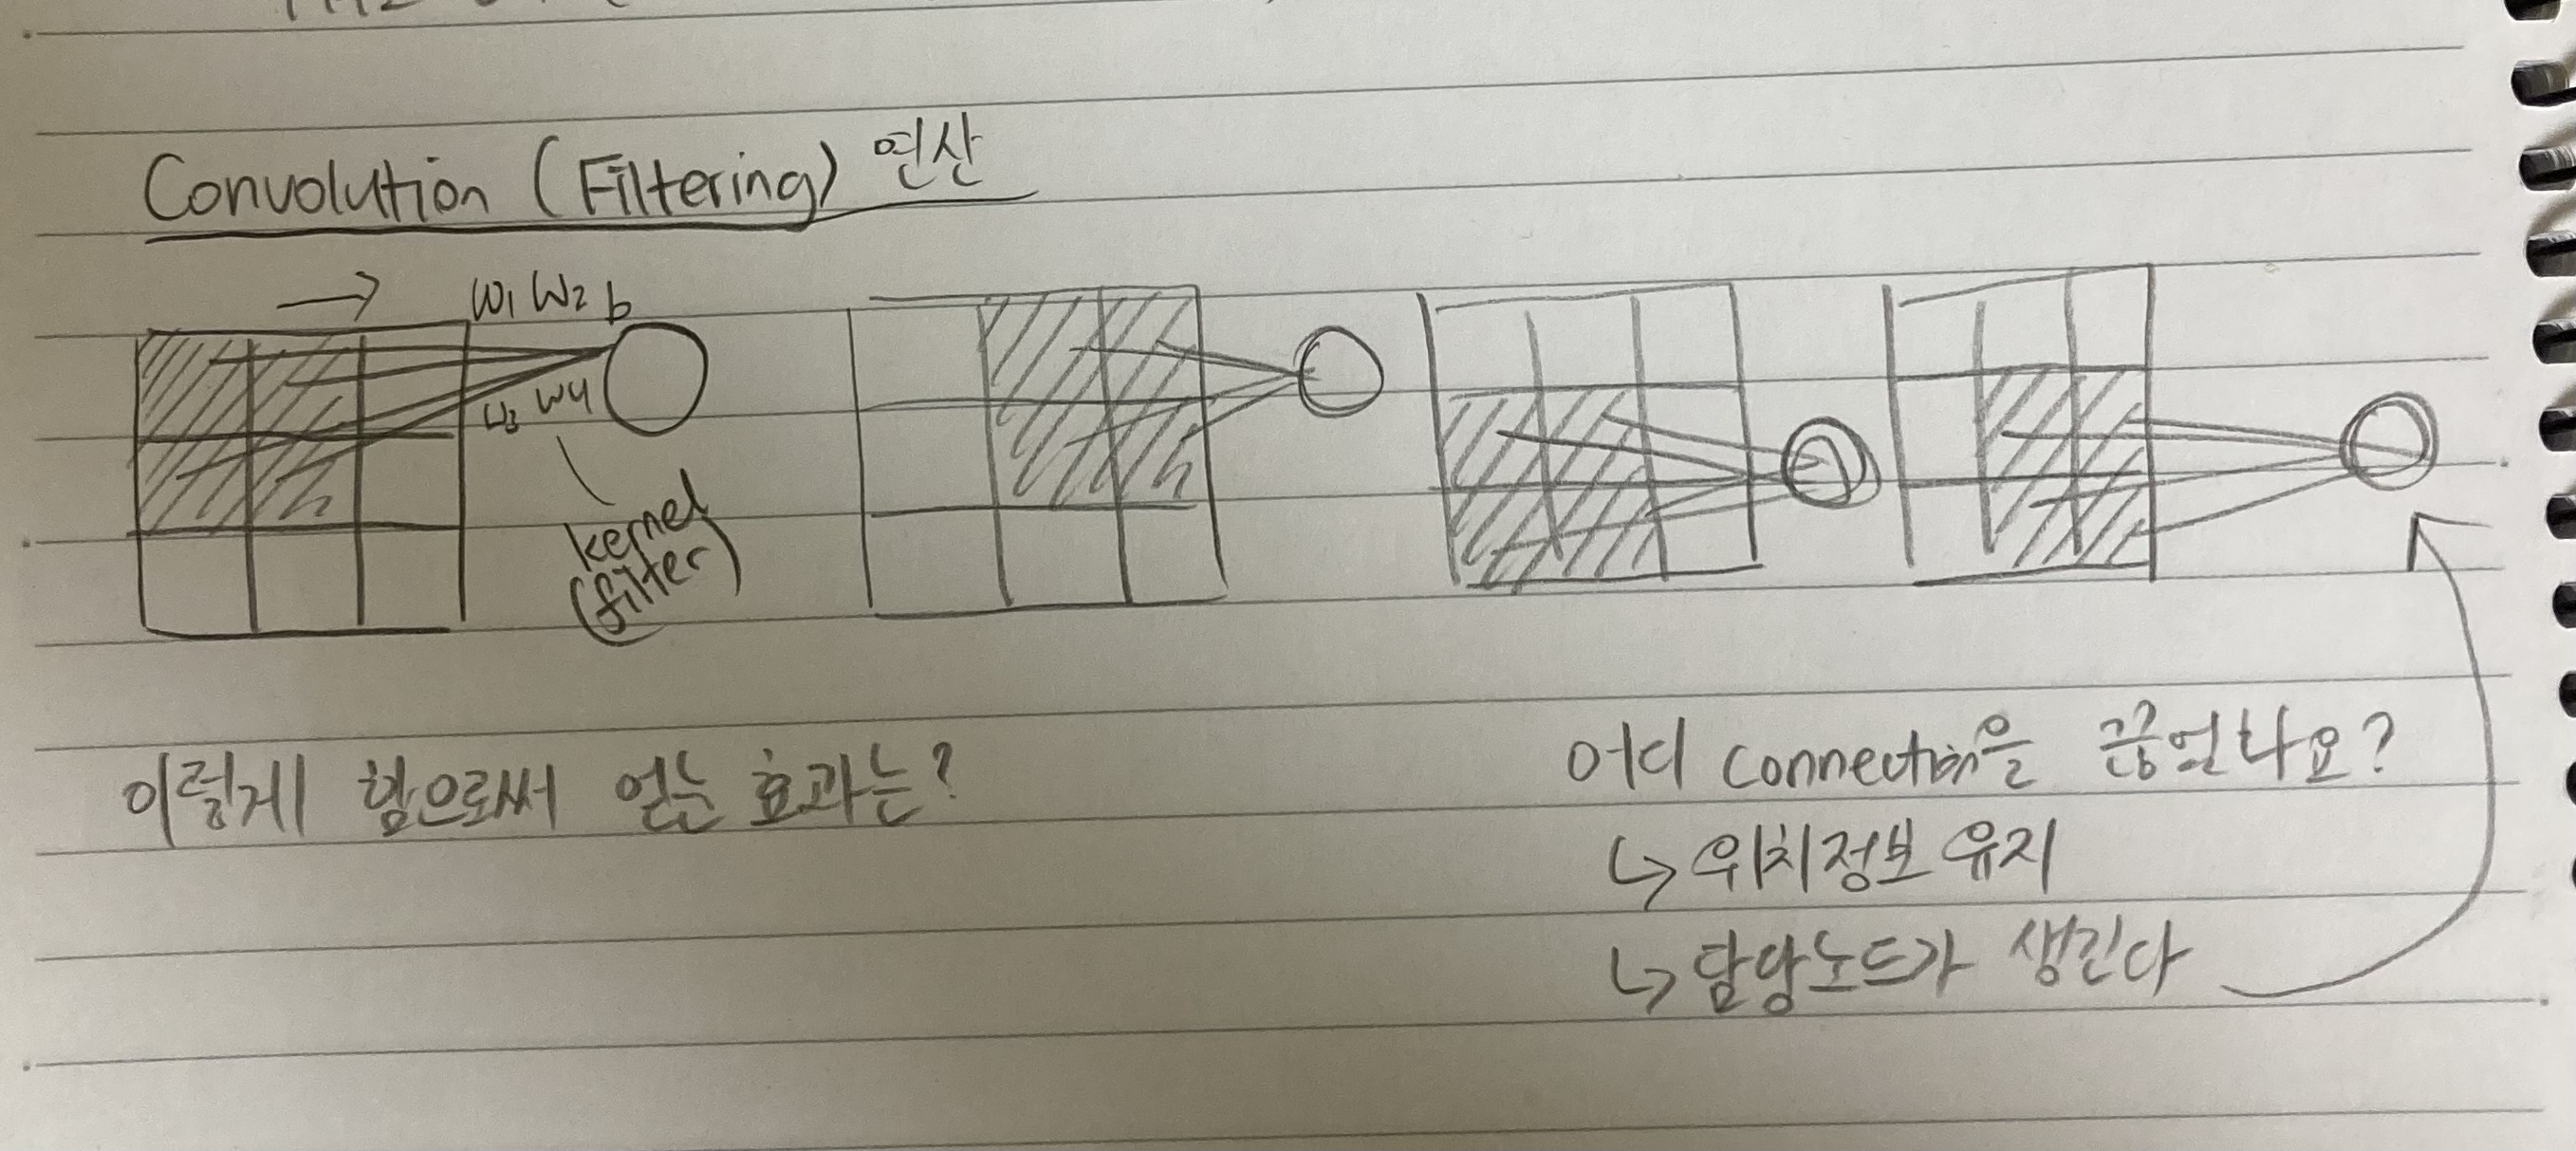 Convolution (Filtering) 연산
→ w₁ w₂ b
w₃ w₄
kernel
(filter)
이렇게 함으로써 얻는 효과는?
어디 connection을 끊었나요?
↳ 위치정보 유지
↳ 담당노드가 생긴다